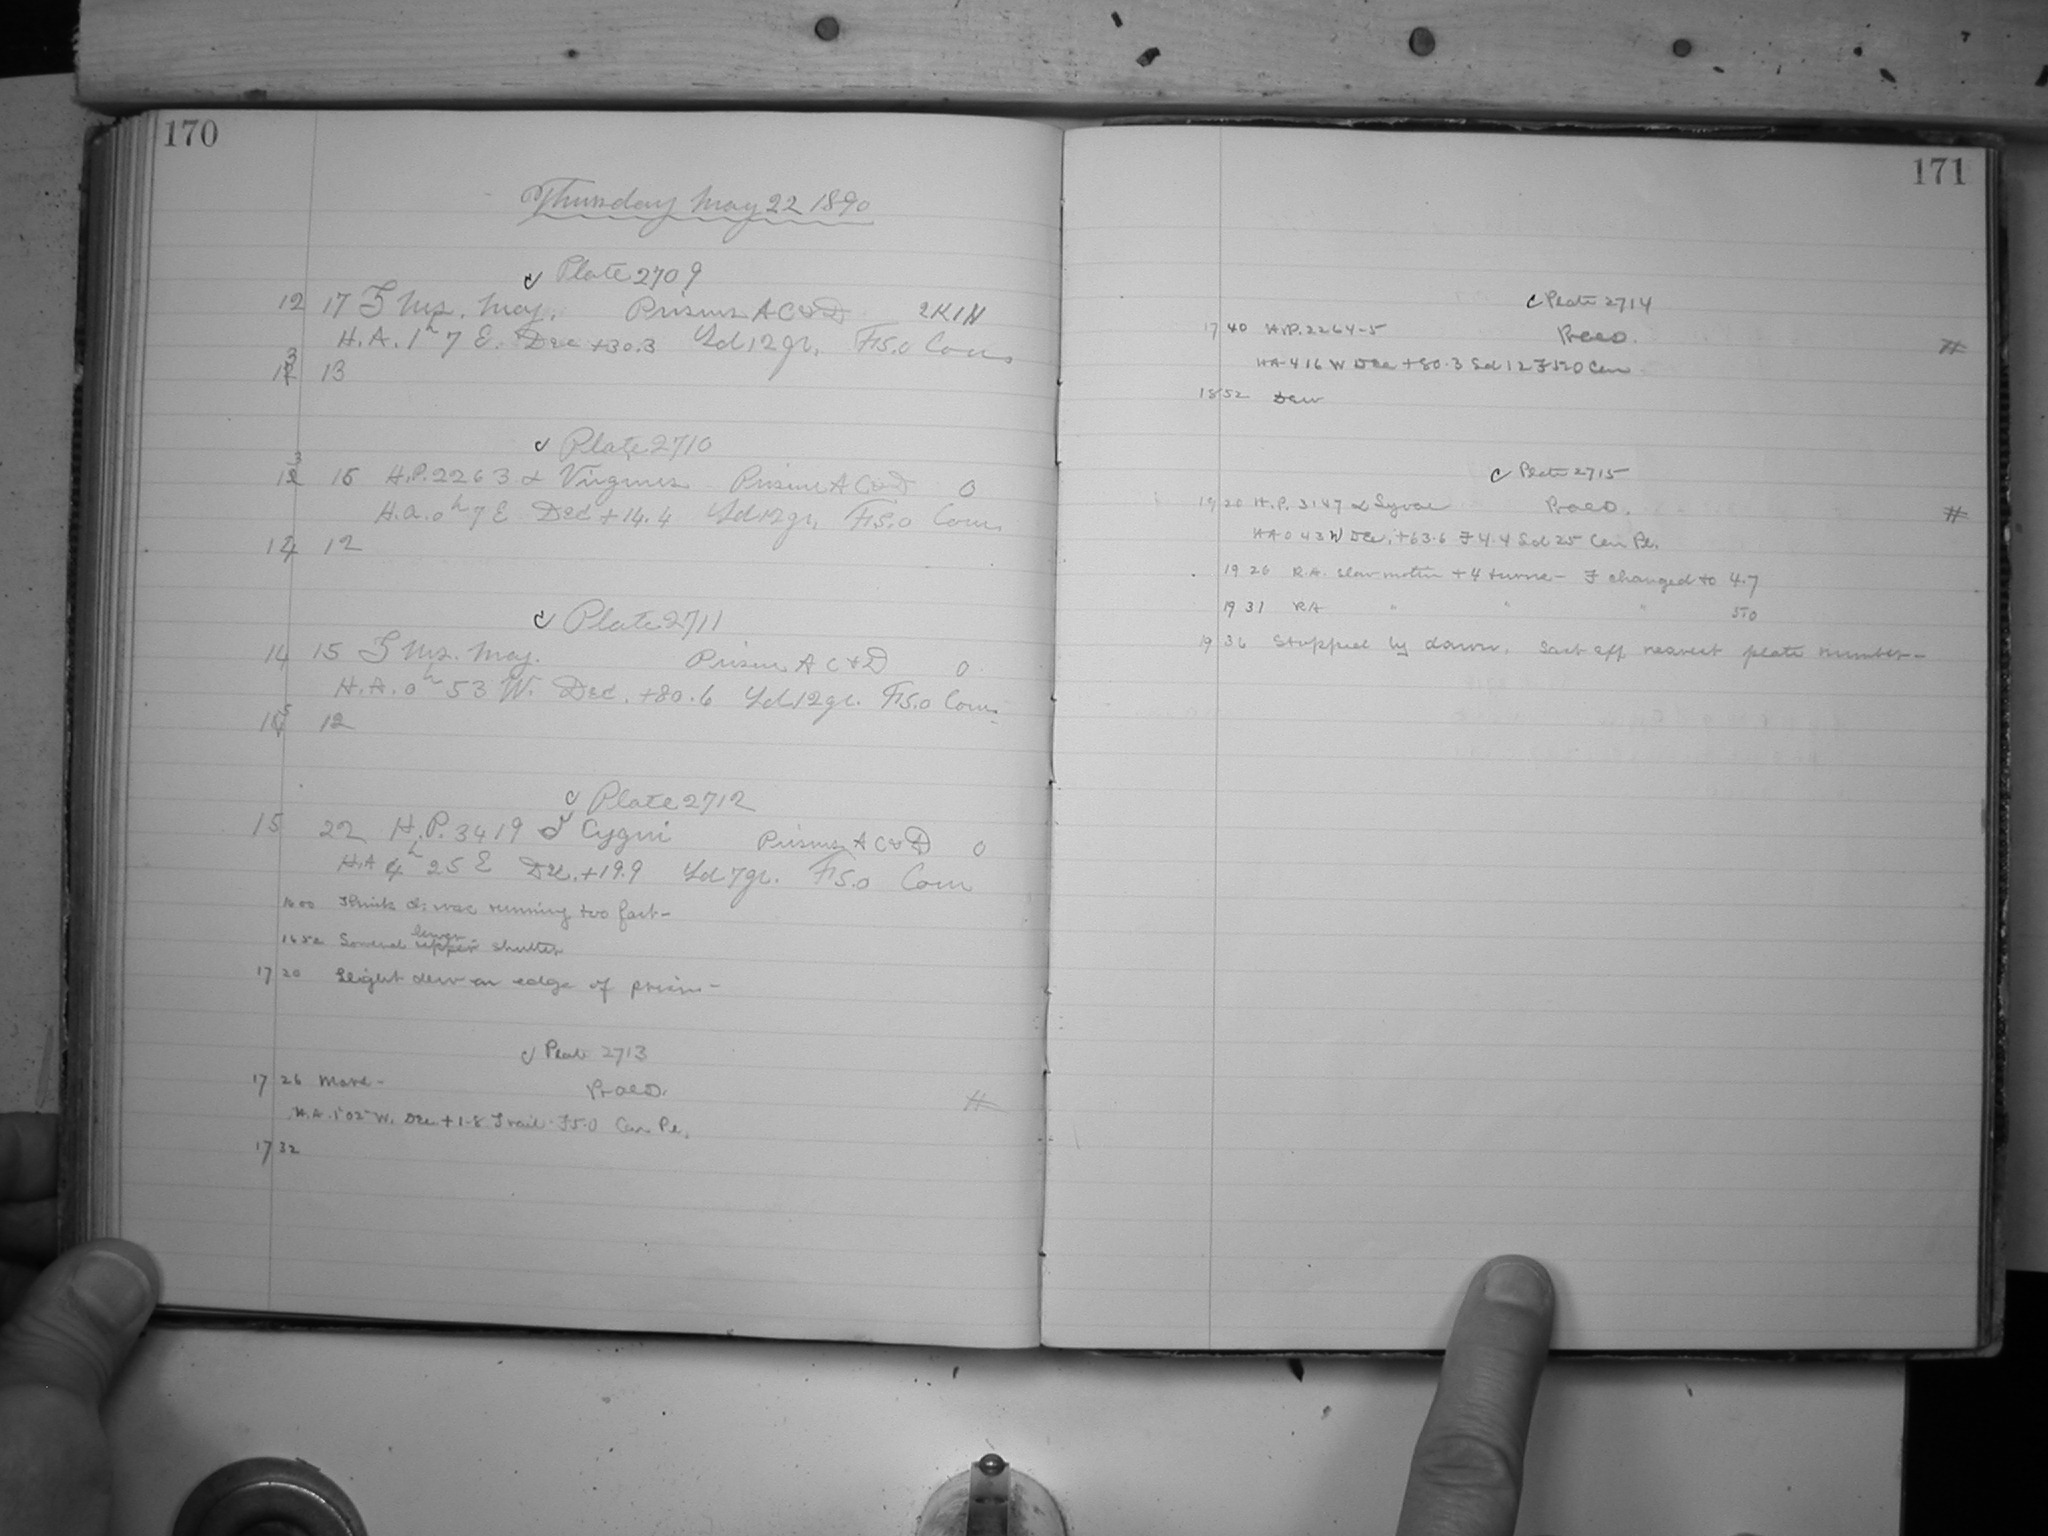 170
Thursday May 22 1890
Plate 2709
12 17 ζ Urs. Maj. Prisms A C & D 2K1H
H.A. 1h 7 E. Dec +30.3 Sd 12gr. F 5.0 Com.
13 13
Plate 2710
13 15 H.P. 2263 α Virginis Prisms A C & D 0
H.A. 0h 7 E Dec +14.4 Sd 12gr. F 5.0 Com.
14 12
Plate 2711
14 15 ζ Urs. Maj. Prisms A C & D 0
H.A. 0h 53 W. Dec. +80.6 Sd 12gr. F 5.0 Com.
15 12
Plate 2712
15 22 H.P. 3419 Cygni Prisms A C & D 0
H.A 4h 25 E Dec. +19.9 Sd 7gr. F 5.0 Com
16 00 Think was running too fast-
16 52 Lowered upper lower shutter
17 20 Slight dew on edge of prism-
Plate 2713
17 26 Mars-
H.A. 1 02 W. Dec +1.8 Trail F 5.0 Com Pl.
17 32
171
Plate 2714
17 40 H.P. 2264-5
HA 4 16 W Dec +80.3 Sd 12 F 5.0 Com
18 52 Dew
Plate 2715
19 20 H.P. 3147 α Lyrae
HA 0 43 W Dec. +63.6 F 4.4 Sd 25 Com Pl.
19 26 R.A. slow motion +4 turns- F changed to 4.7
19 31 RA " " " 5.0
19 36 Stopped by dawn. Last exp nearest plate number-